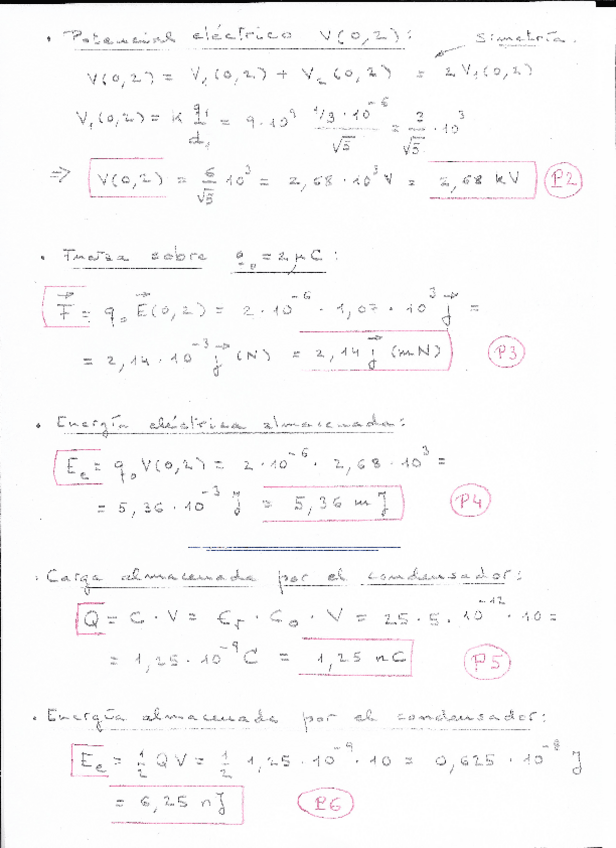 • Potencial eléctrico V(0,2):
Simetría.
V(0,2) = V₁(0,2) + V₂(0,2) = 2V₁(0,2)
V₁(0,2) = K q₁/d₁ = 9·10⁹ (1/3·10⁻⁶)/√5 = 3/√5 · 10³
⇒ V(0,2) = 6/√5 10³ = 2,68·10³ V = 2,68 kV P2
• Fuerza sobre q₀ = 2μC:
F⃗ = q₀ E⃗(0,2) = 2·10⁻⁶ · 1,07·10³ j⃗ =
= 2,14·10⁻³ j⃗ (N) = 2,14 j⃗ (mN) P3
• Energía eléctrica almacenada:
Eₑ = q₀ V(0,2) = 2·10⁻⁶ · 2,68·10³ =
= 5,36·10⁻³ J = 5,36 mJ P4
• Carga almacenada por el condensador:
Q = C·V = εᵣ · C₀ · V = 25·5·10⁻¹² · 10 =
= 1,25·10⁻⁹ C = 1,25 nC P5
• Energía almacenada por el condensador:
Eₑ = 1/2 QV = 1/2 1,25·10⁻⁹ · 10 = 0,625·10⁻⁸ J
= 6,25 nJ P6